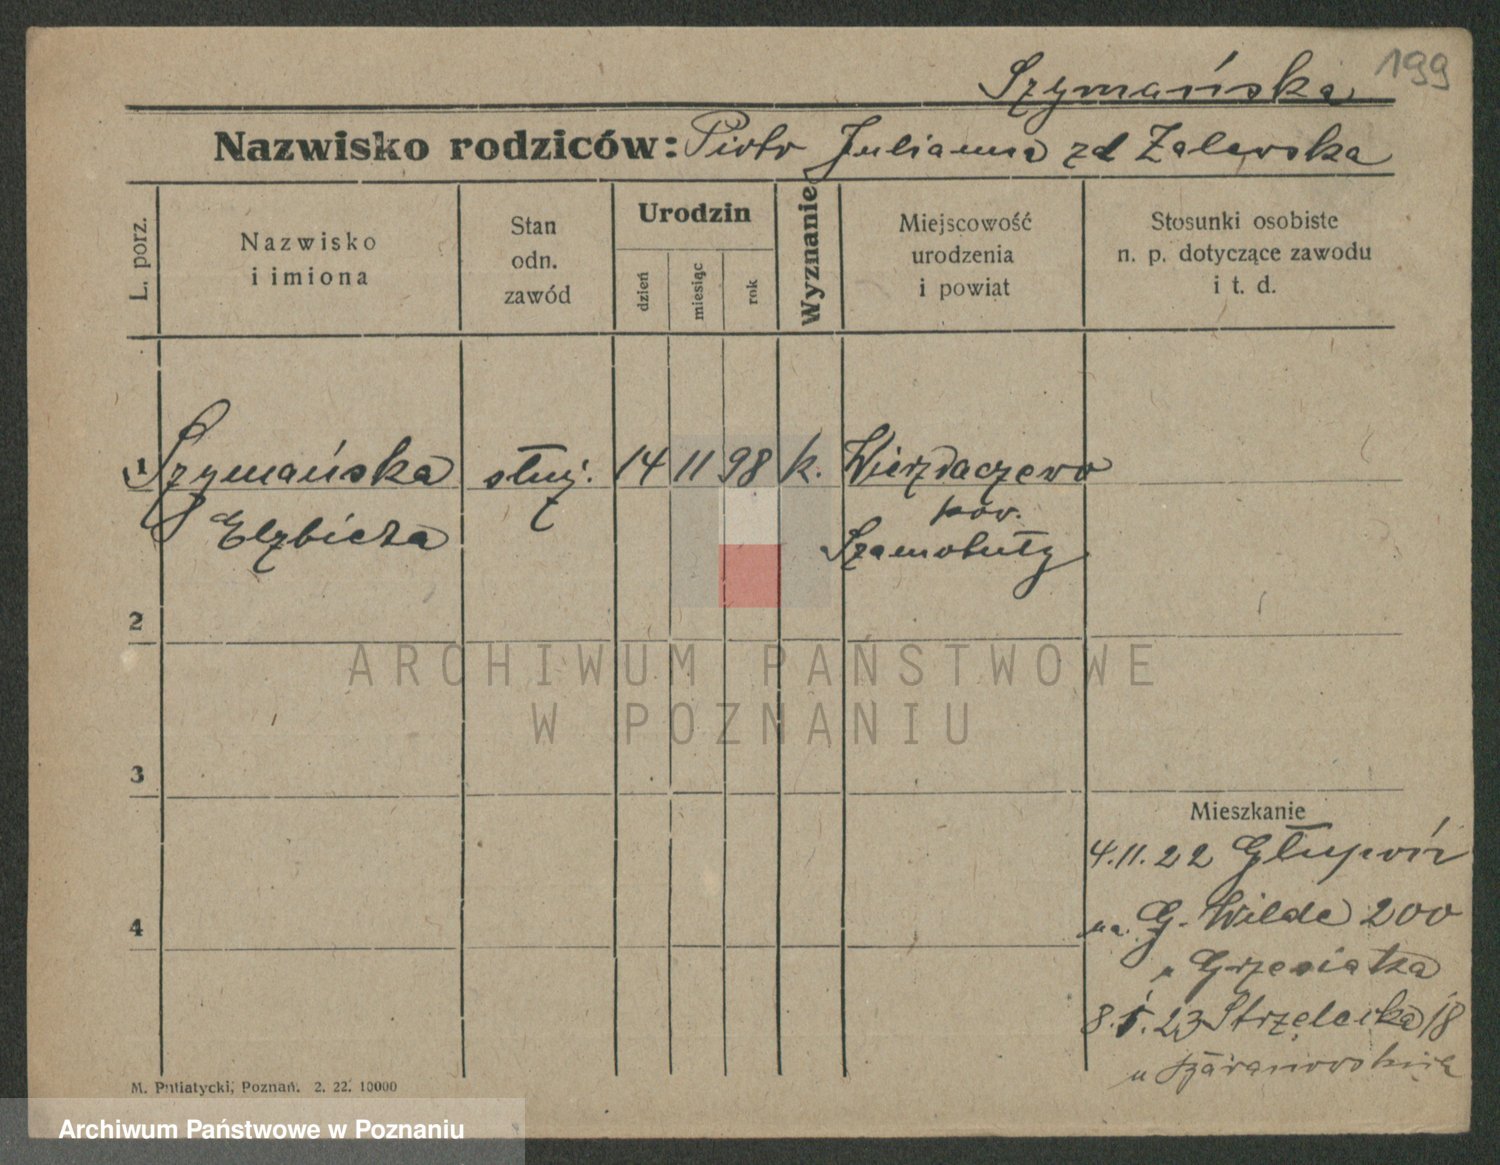 199
Szymańska
Nazwisko rodziców: Piotr Julianna zd Zalewska
L. porz.
Nazwisko
i imiona
Stan
odn.
zawód
Urodzin
dzień
miesiąc
rok
Wyznanie
Miejscowość
urodzenia
i powiat
Stosunki osobiste
n. p. dotyczące zawodu
i t. d.
1 Szymańska służ. 14 11 98 k. Wierzdaczewo
Elżbieta pow.
Szamotuły
2
ARCHIWUM PAŃSTWOWE
W POZNANIU
3
Mieszkanie
4.11.22
4
na G. Wilde 200
u Grzesiaka
8.1.23 Strzelecka 18
u
M. Putiatycki, Poznań. 2. 22. 10000
Archiwum Państwowe w Poznaniu